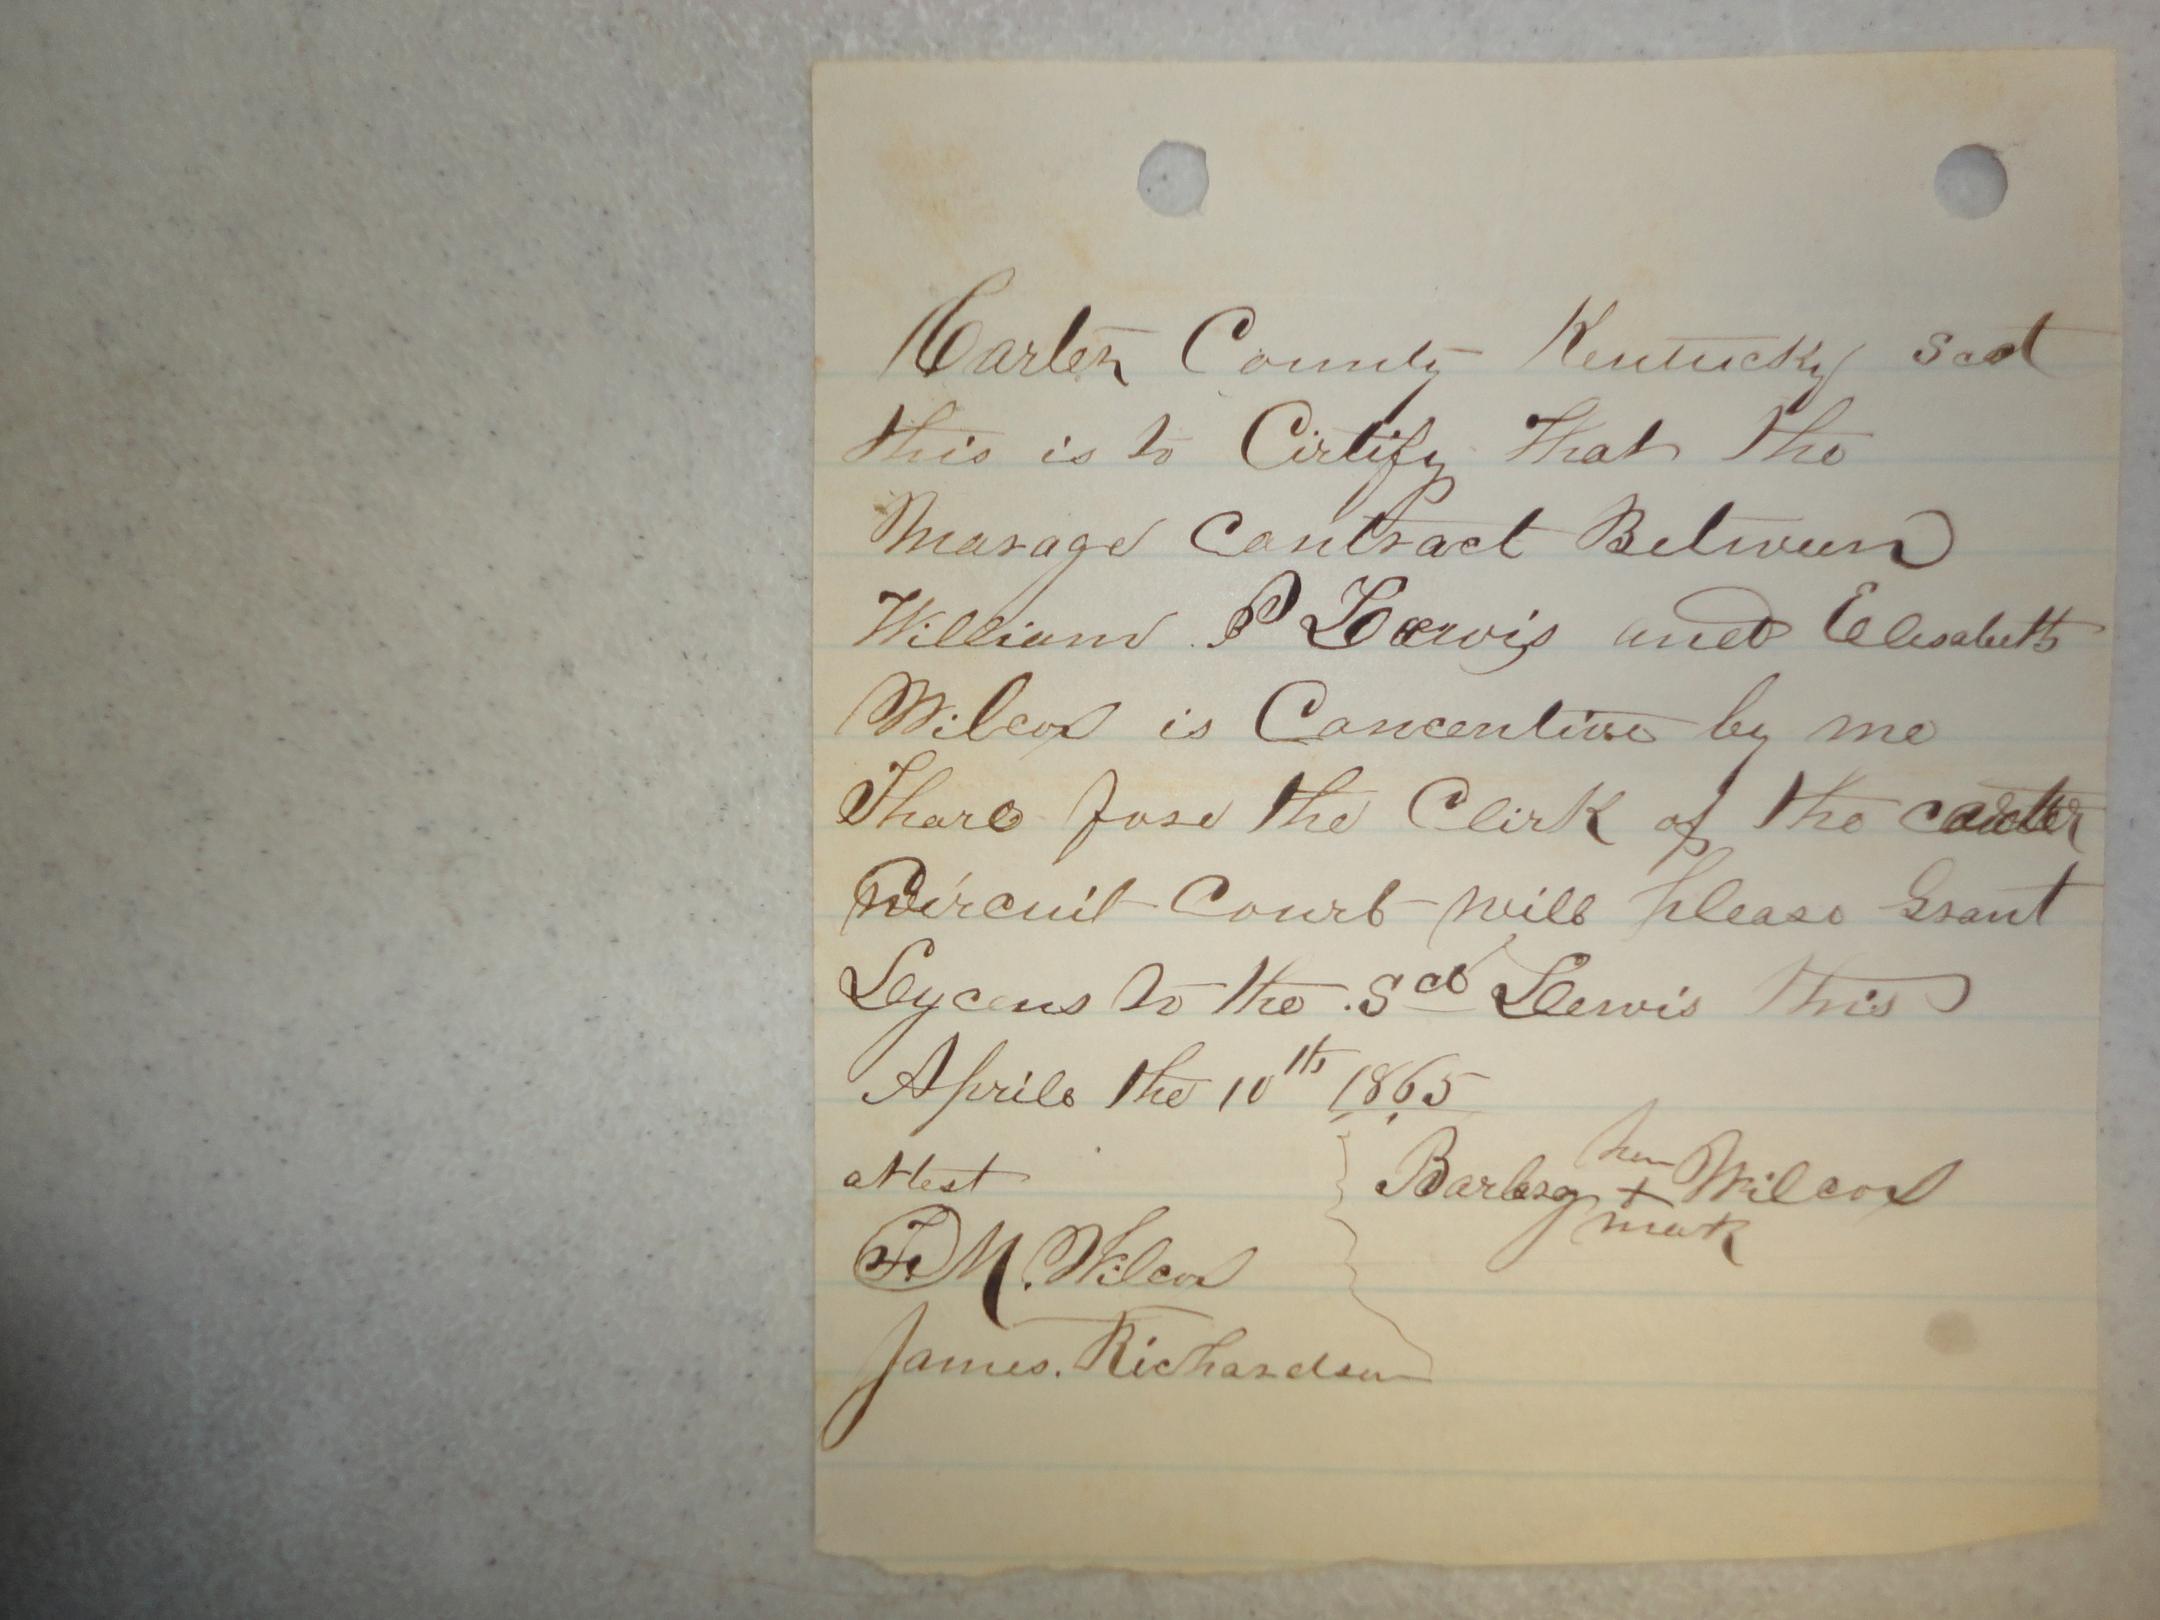 Carter County Kentucky Sct
this is to Cirtify that the
Marage Contract Between
William P Lewis and Elisabeth
Wilcox is Concentive by me
Thare fore the Clirk of the carter
Circuit Court will please Grant
Leycens to the Sd Lewis this
Aprile the 10th 1865
attest
Barbary her + mark Wilcox
F. M. Wilcox
James. Richardson